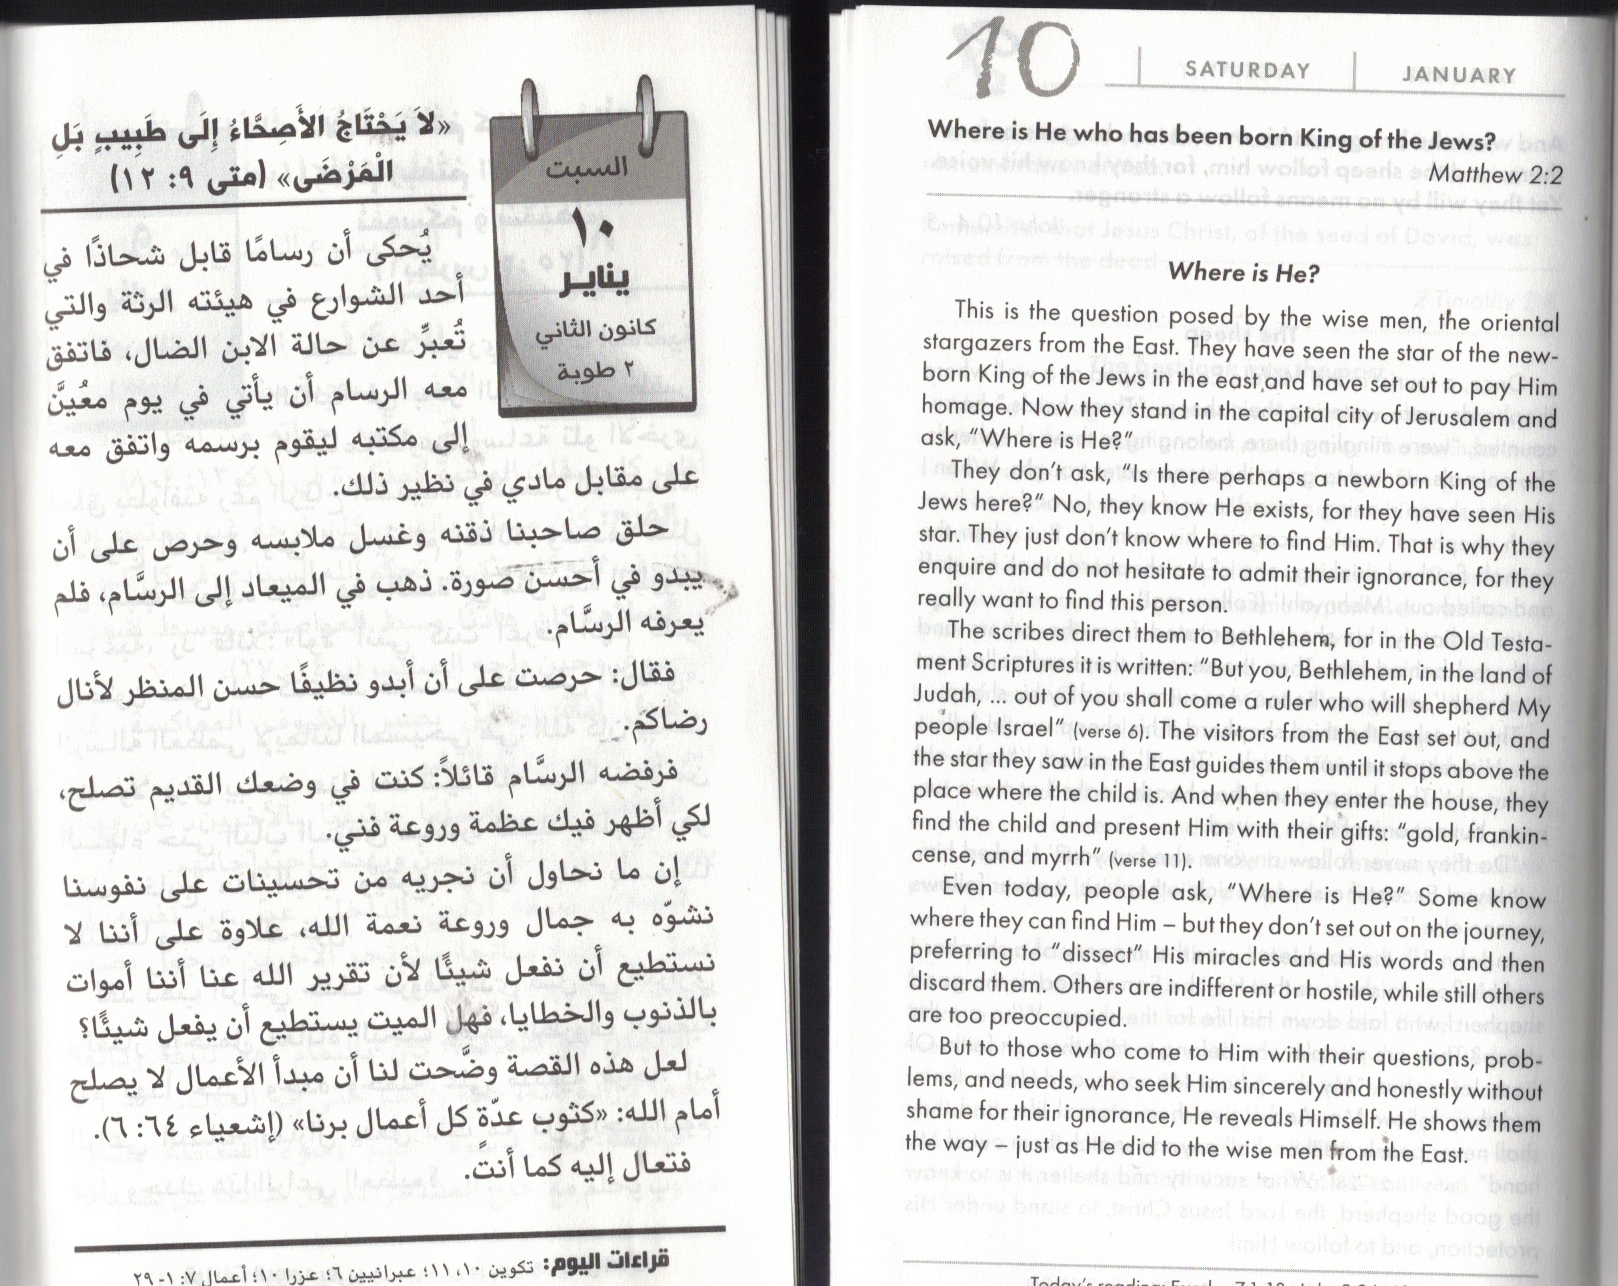 «لاَ يَحْتَاجُ الأَصِحَّاءُ إِلَى طَبِيبٍ بَلِ
الْمَرْضَى» (متى ٩: ١٢)
السبت
١٠
يناير
كانون الثاني
٢ طوبة
يُحكى أن رسامًا قابل شحاذًا في
أحد الشوارع في هيئته الرثة والتي
تُعبرِّ عن حالة الابن الضال، فاتفق
معه الرسام أن يأتي في يوم معُينَّ
إلى مكتبه ليقوم برسمه واتفق معه
على مقابل مادي في نظير ذلك.
حلق صاحبنا ذقنه وغسل ملابسه وحرص على أن
يبدو في أحسن صورة. ذهب في الميعاد إلى الرسَّام، فلم
يعرفه الرسَّام.
فقال: حرصت على أن أبدو نظيفًا حسن المنظر لأنال
رضاكم.
فرفضه الرسَّام قائلاً: كنت في وضعك القديم تصلح،
لكي أظهر فيك عظمة وروعة فني.
إن ما نحاول أن نجريه من تحسينات على نفوسنا
نشوّه به جمال وروعة نعمة الله، علاوة على أننا لا
نستطيع أن نفعل شيئًا لأن تقرير الله عنا أننا أموات
بالذنوب والخطايا، فهل الميت يستطيع أن يفعل شيئًا؟
لعل هذه القصة وضَّحت لنا أن مبدأ الأعمال لا يصلح
أمام الله: «كثوب عدّةٍ كل أعمال برنا» (إشعياء ٦٤: ٦).
فتعال إليه كما أنت.
قراءات اليوم: تكوين ١٠، ١١؛ عبرانيين ٦؛ عزرا ١٠؛ أعمال ٧: ١- ٢٩
10 SATURDAY JANUARY
Where is He who has been born King of the Jews?
Matthew 2:2
Where is He?
This is the question posed by the wise men, the oriental
stargazers from the East. They have seen the star of the new-
born King of the Jews in the east,and have set out to pay Him
homage. Now they stand in the capital city of Jerusalem and
ask, “Where is He?”
They don’t ask, “Is there perhaps a newborn King of the
Jews here?” No, they know He exists, for they have seen His
star. They just don’t know where to find Him. That is why they
enquire and do not hesitate to admit their ignorance, for they
really want to find this person.
The scribes direct them to Bethlehem, for in the Old Testa-
ment Scriptures it is written: “But you, Bethlehem, in the land of
Judah, ... out of you shall come a ruler who will shepherd My
people Israel” (verse 6). The visitors from the East set out, and
the star they saw in the East guides them until it stops above the
place where the child is. And when they enter the house, they
find the child and present Him with their gifts: “gold, frankin-
cense, and myrrh” (verse 11).
Even today, people ask, “Where is He?” Some know
where they can find Him – but they don’t set out on the journey,
preferring to “dissect” His miracles and His words and then
discard them. Others are indifferent or hostile, while still others
are too preoccupied.
But to those who come to Him with their questions, prob-
lems, and needs, who seek Him sincerely and honestly without
shame for their ignorance, He reveals Himself. He shows them
the way – just as He did to the wise men from the East.